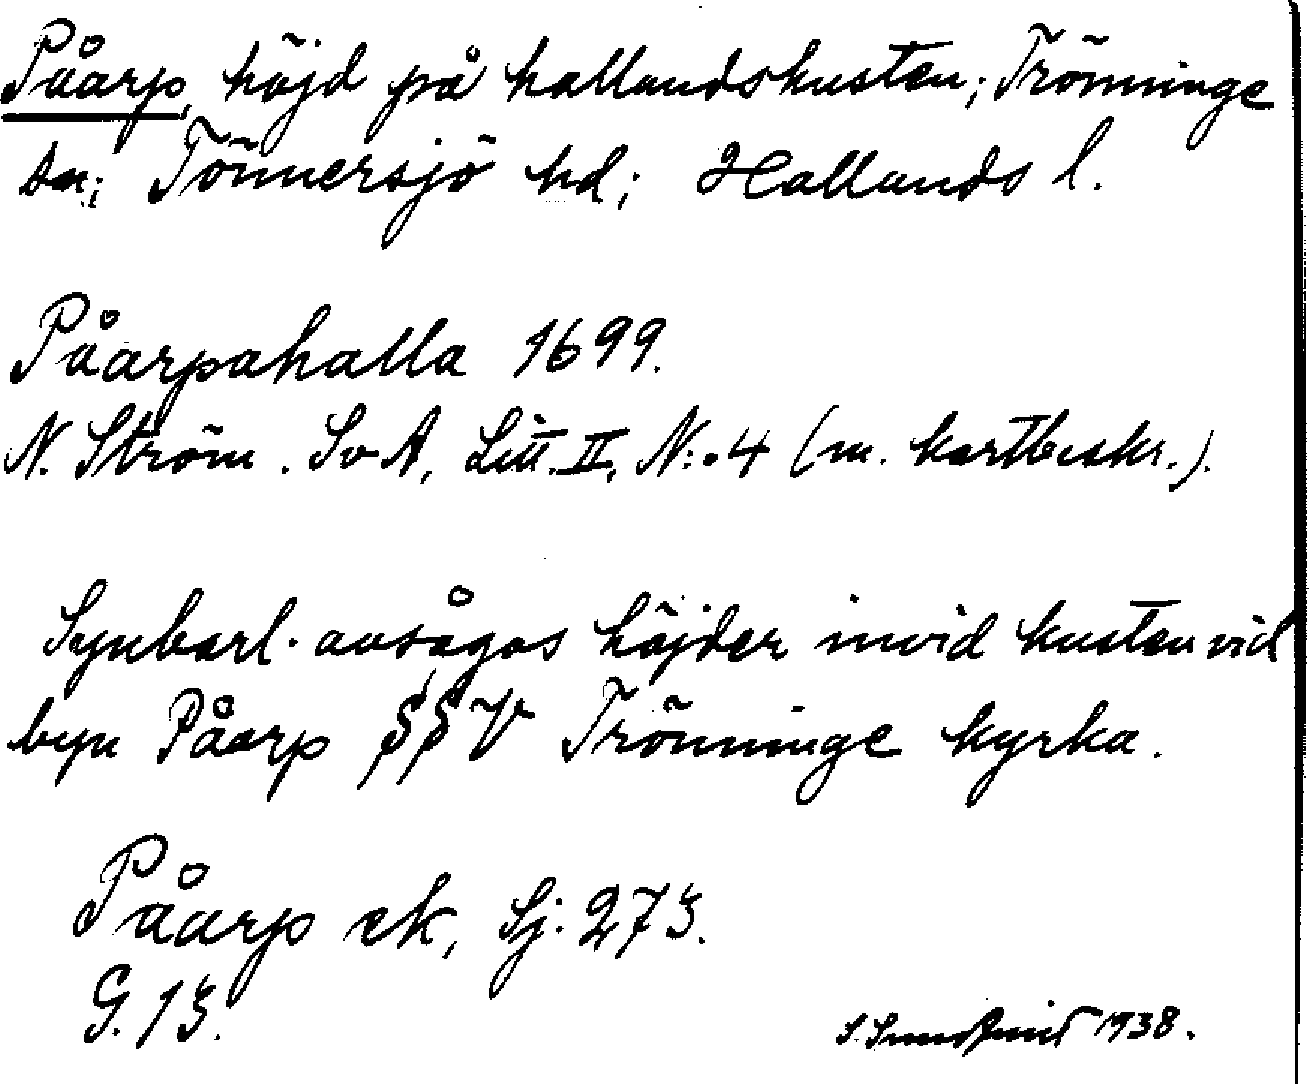 Påarp, höjd på hallandskusten; Trönninge
sn; Tönnersjö hd; Hallands l.
Påarpahalla 1699.
N. Ström. SvA, Litt. II, N:o 4 (m. kartbeskr.).
Synbarl. avsågos höjder invid kusten vid
byn Påarp §§V Trönninge kyrka.
Påarp ek, Sj. 273.
G. 13.
1938.